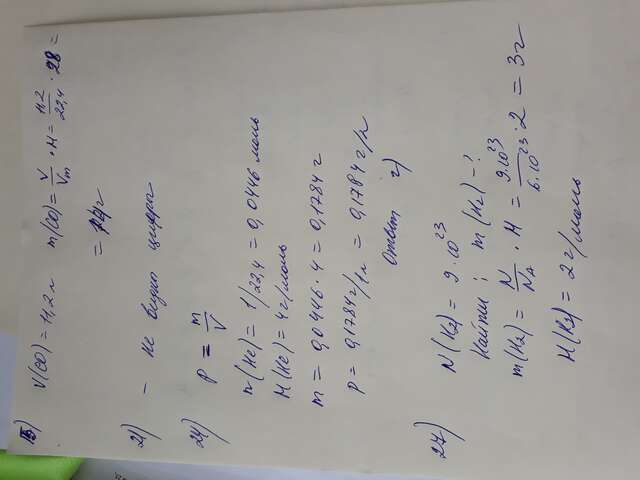 15) V(CO) = 11,2 л m(CO) = V/Vm · M = 11.2/22,4 · 28 =
= 14 г
21) – не видно цифры
24) ρ = m/V
n(He) = 1/22,4 = 0,0446 моль
M(He) = 4 г/моль
m = 0,0446 · 4 = 0,1784 г
ρ = 0,1784 г/1 л = 0,1784 г/л
Ответ г)
27) N(H2) = 9 · 10^23
Найти: m(H2) – ?
m(H2) = N/NA · M = 9·10^23/6·10^23 · 2 = 3 г
M(H2) = 2 г/моль